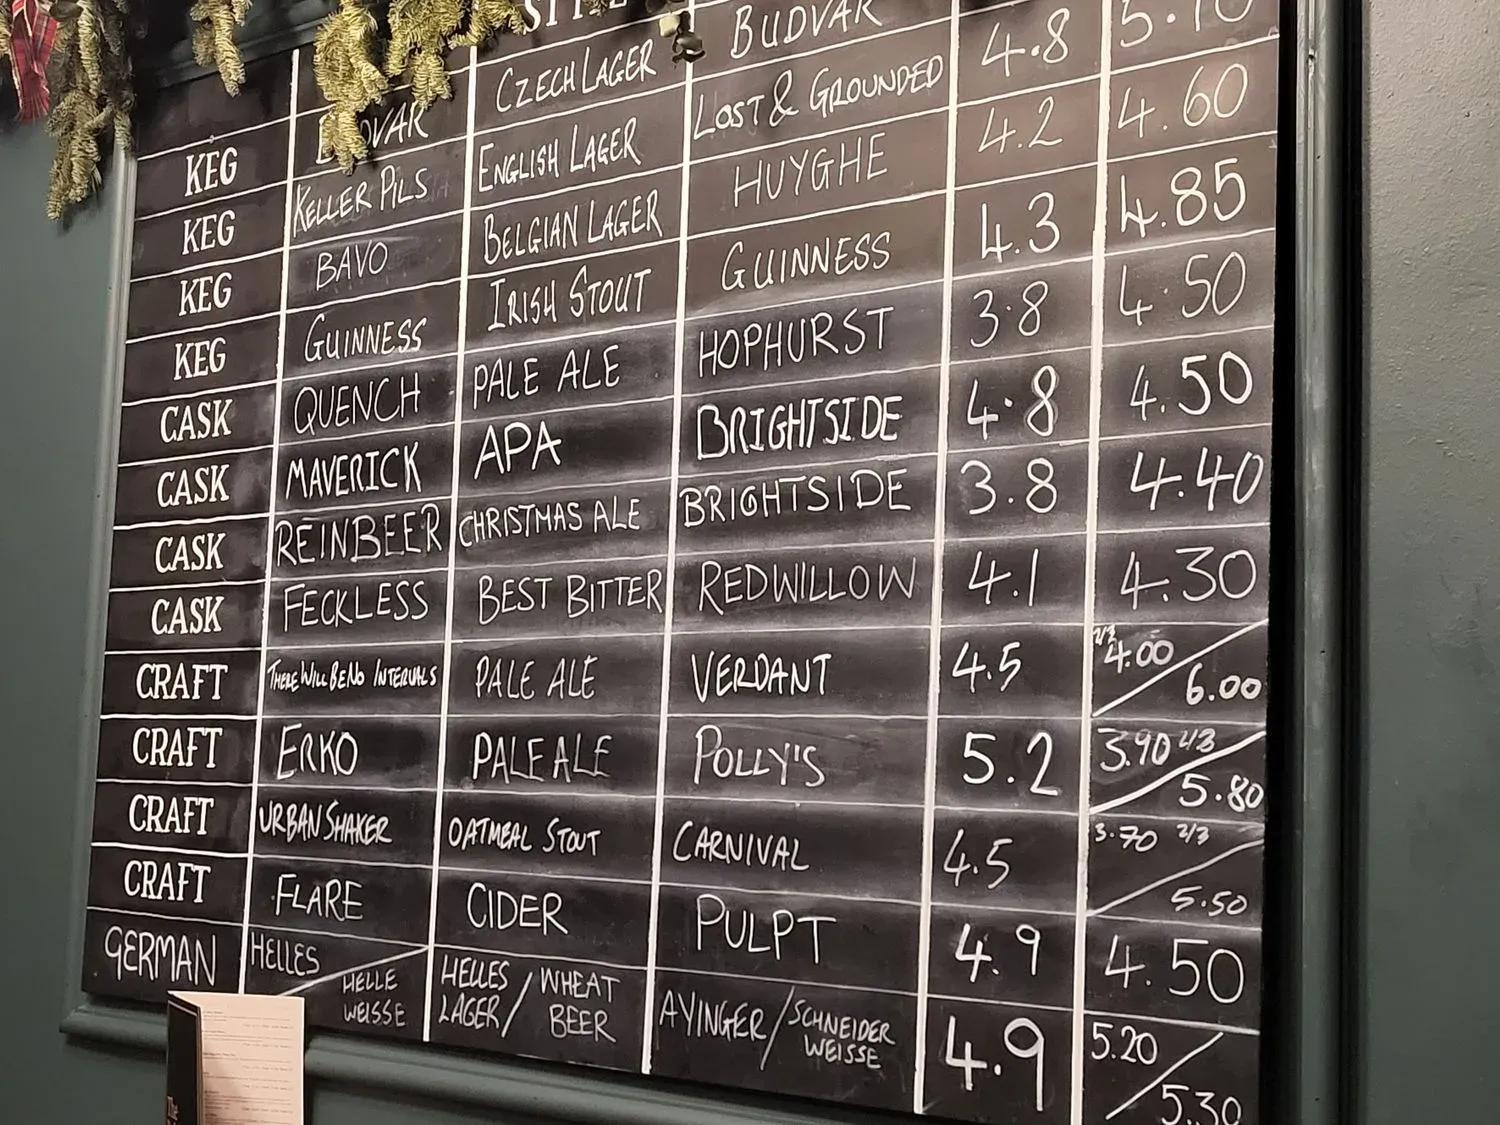 KEG BUDVAR CZECH LAGER BUDVAR
KEG KELLER PILS ENGLISH LAGER LOST & GROUNDED 4.8 5.10
KEG BAVO BELGIAN LAGER HUYGHE 4.2 4.60
KEG GUINNESS IRISH STOUT GUINNESS 4.3 4.85
CASK QUENCH PALE ALE HOPHURST 3.8 4.50
CASK MAVERICK APA BRIGHTSIDE 4.8 4.50
CASK REINBEER CHRISTMAS ALE BRIGHTSIDE 3.8 4.40
CASK FECKLESS BEST BITTER REDWILLOW 4.1 4.30
CRAFT THERE WILL BE NO INTERVALS PALE ALE VERDANT 4.5 2/3 4.00 / 6.00
CRAFT ERKO PALE ALE POLLY'S 5.2 3.90 2/3 / 5.80
CRAFT URBAN SHAKER OATMEAL STOUT CARNIVAL 4.5 3.70 2/3 / 5.50
CRAFT FLARE CIDER PULPT 4.9 4.50
GERMAN HELLES / HELLE WEISSE HELLES LAGER / WHEAT BEER AYINGER / SCHNEIDER WEISSE 4.9 5.20 / 5.30
The